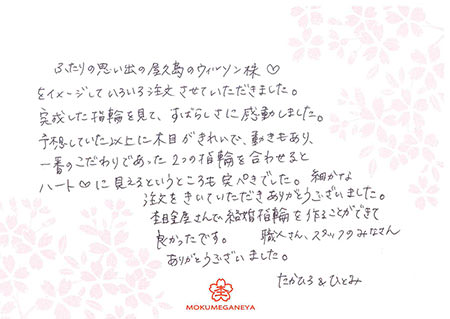 ふたりの思い出の屋久島のウィルソン株♡
をイメージしていろいろ注文させていただきました。
完成した指輪を見て、すばらしさに感動しました。
予想していた以上に木目がきれいで、動きもあり、
一番のこだわりであった2つの指輪を合わせると
ハート♡に見えるというところも完ぺきでした。細かな
注文をきいていただきありがとうございました。
杢目金屋さんで結婚指輪を作ることができて
良かったです。 職人さん、スタッフのみなさん
ありがとうございました。
たかひろ&ひとみ
MOKUMEGANEYA